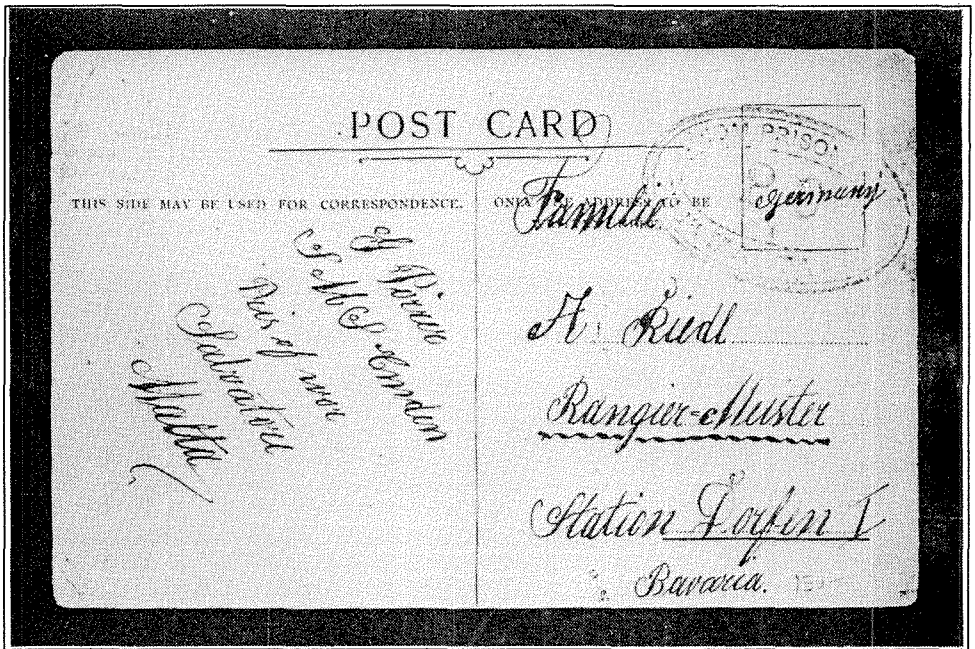 POST CARD
THIS SIDE MAY BE USED FOR CORRESPONDENCE.
G
S M S Emden
Pris of war
Salvatore
Malta
ONLY THE ADDRESS TO BE
Germany
Familie
A. Riedl
Rangier-Meister
Station Dorfen I
Bavaria.